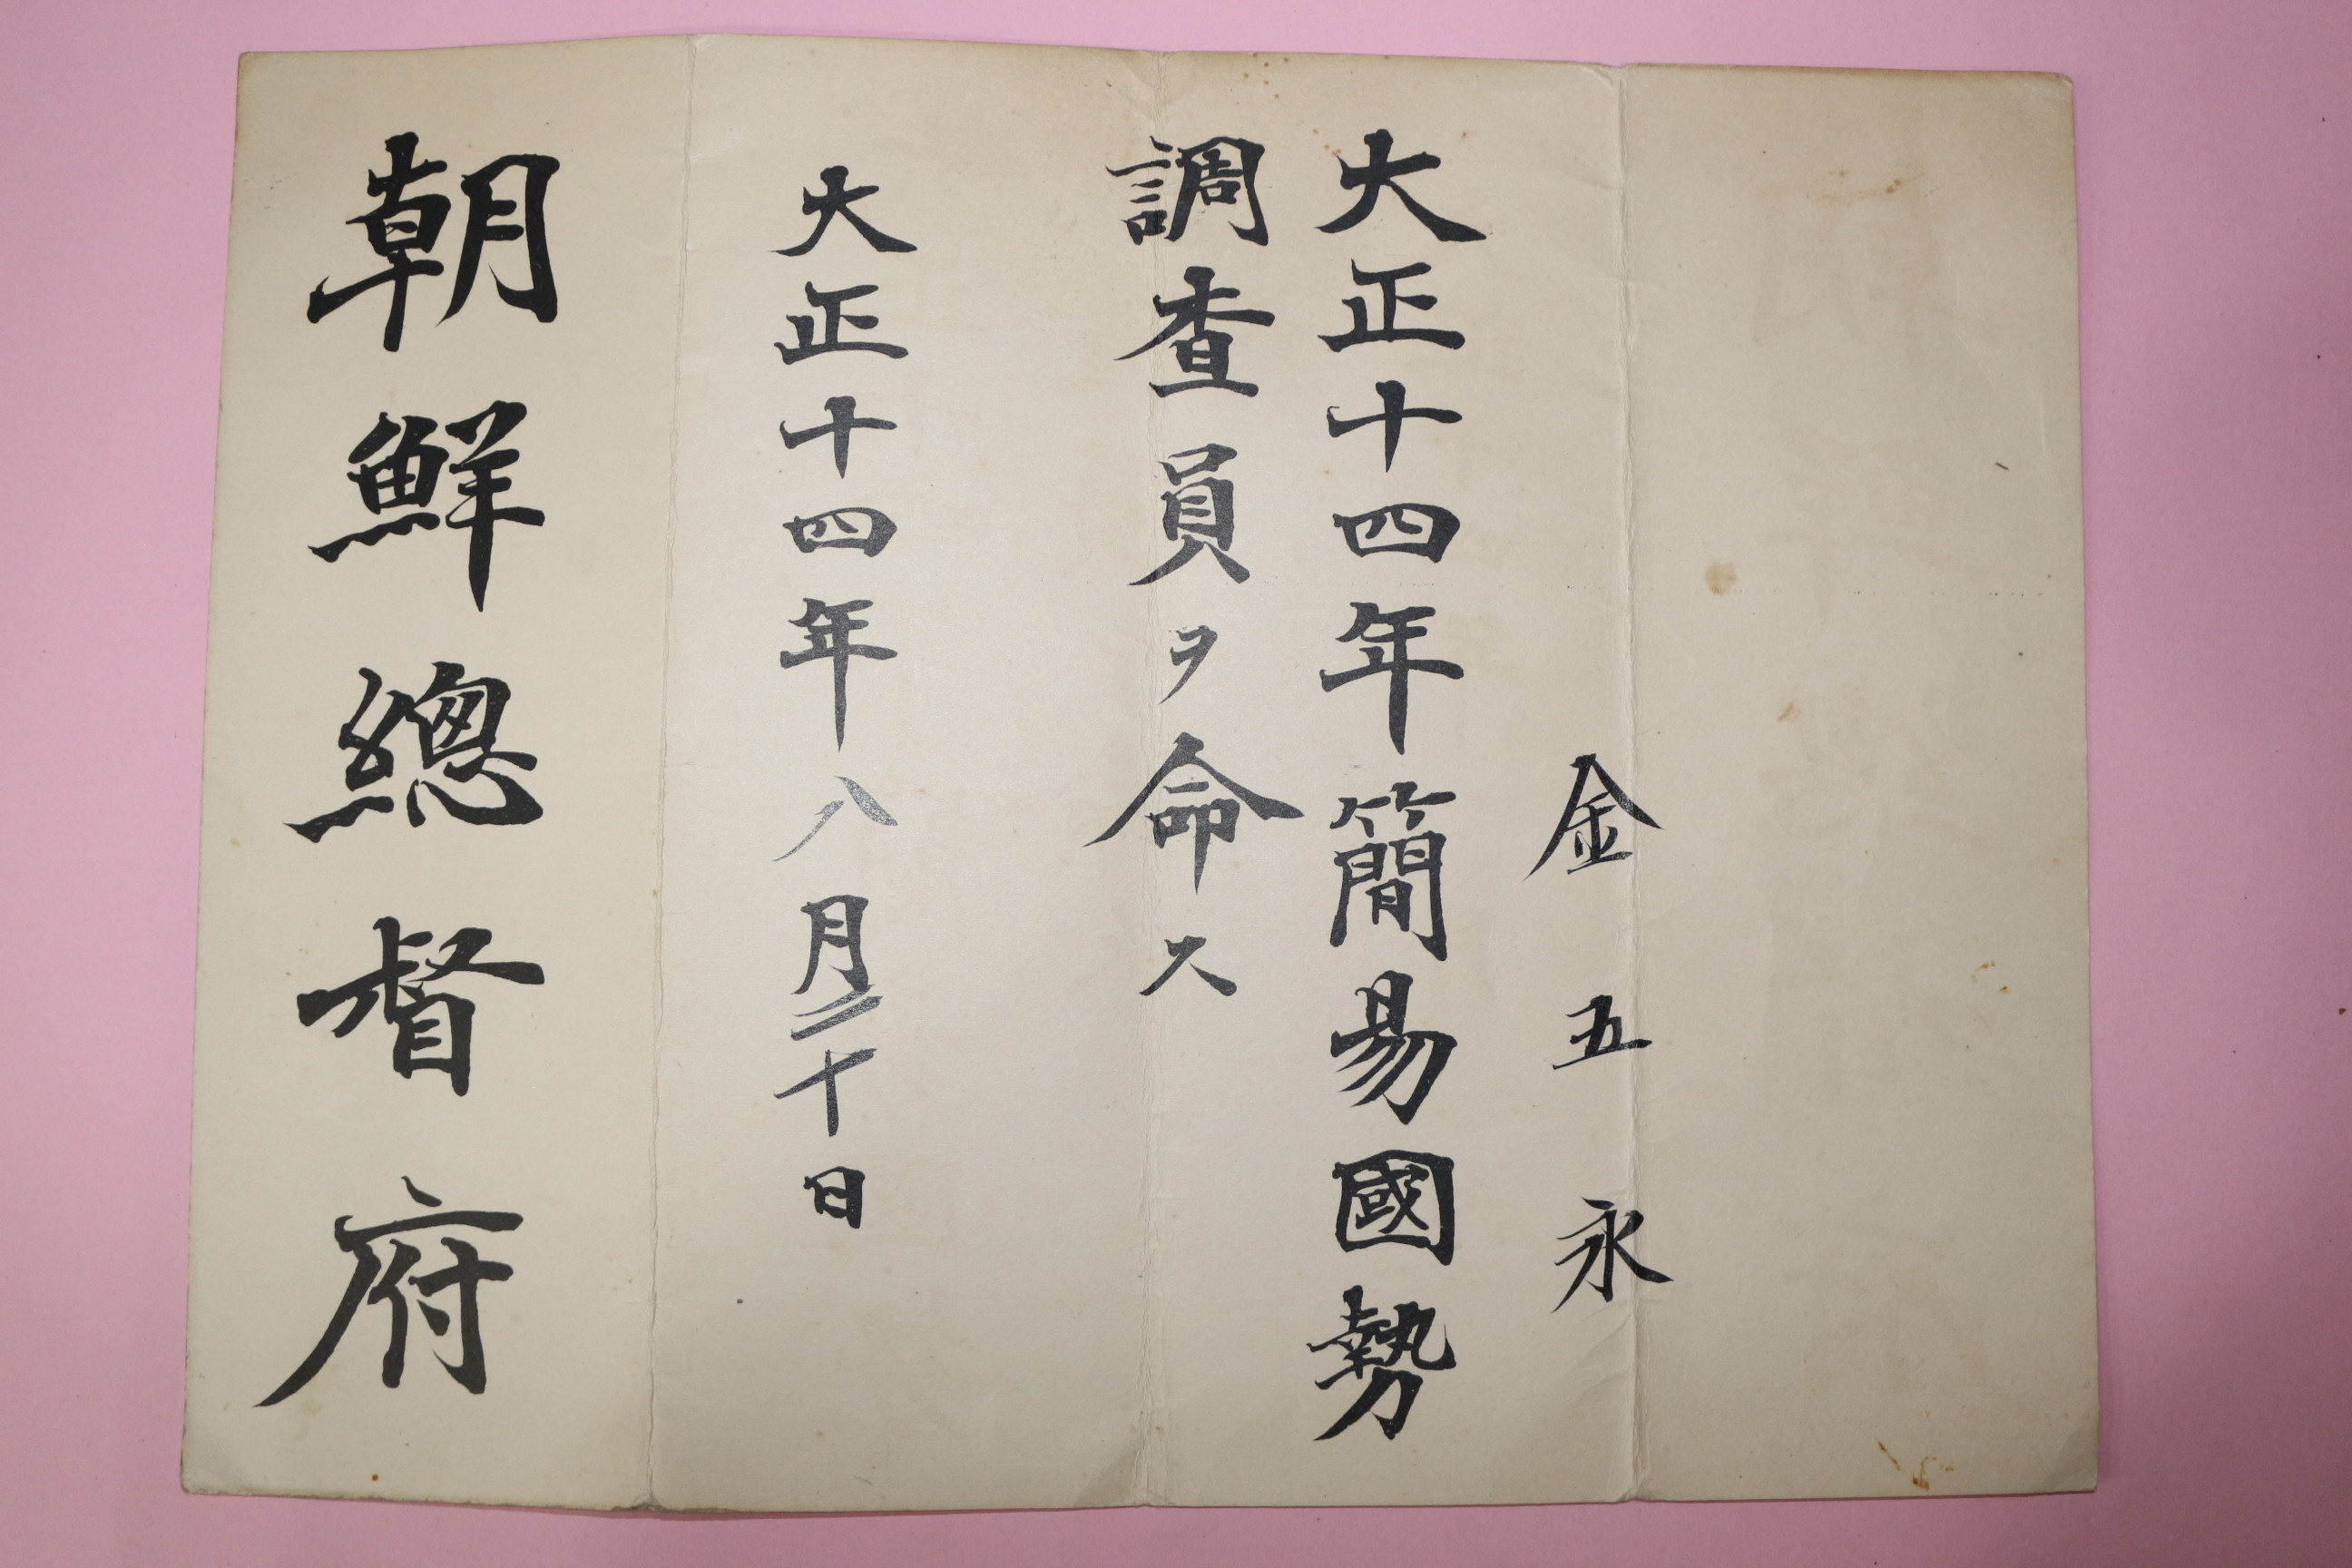 金五永
大正十四年簡易國勢
調査員ヲ命ス
大正十四年八月二十日
朝鮮總督府